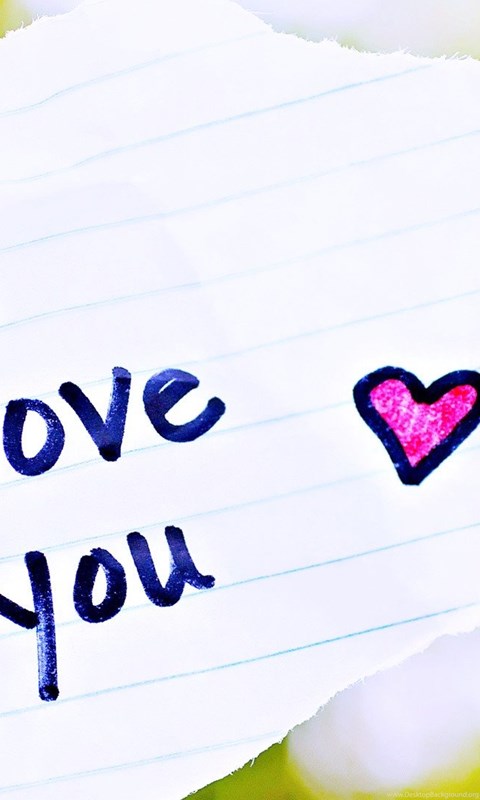 ove
you
www.DesktopBackground.org